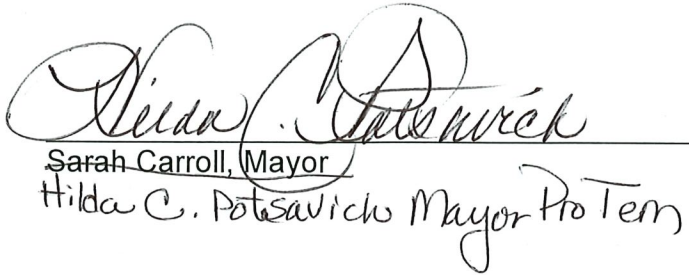 Hilda C. Potsavich
Sarah Carroll, Mayor
Hilda C. Potsavich Mayor Pro Tem